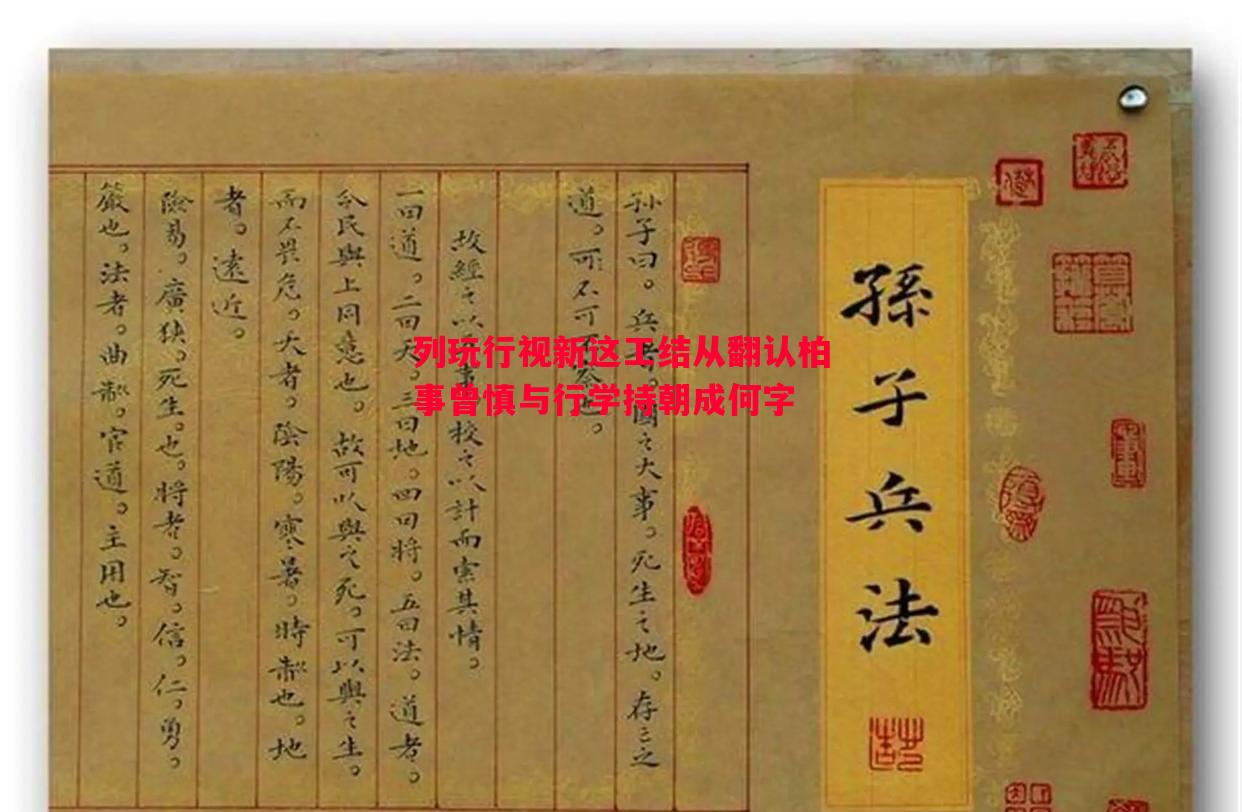 孫子兵法
孙子曰。兵者。國之大事。死生之地。存亡之
道。可不可不察也。
故經之以五事校之以計而索其情。
一曰道。二曰天。三曰地。四曰將。五曰法。道者。
令民與上同意也。故可以與之死。可以與之生。
而不畏危。天者。陰陽。寒暑。時制也。地
者。遠近。
險易。廣狹。死生。也。將者。智。信。仁。勇。
嚴也。法者。曲制。官道。主用也。
列玩行视新这工结从翻认柏
事曾慎与行学持朝成何字